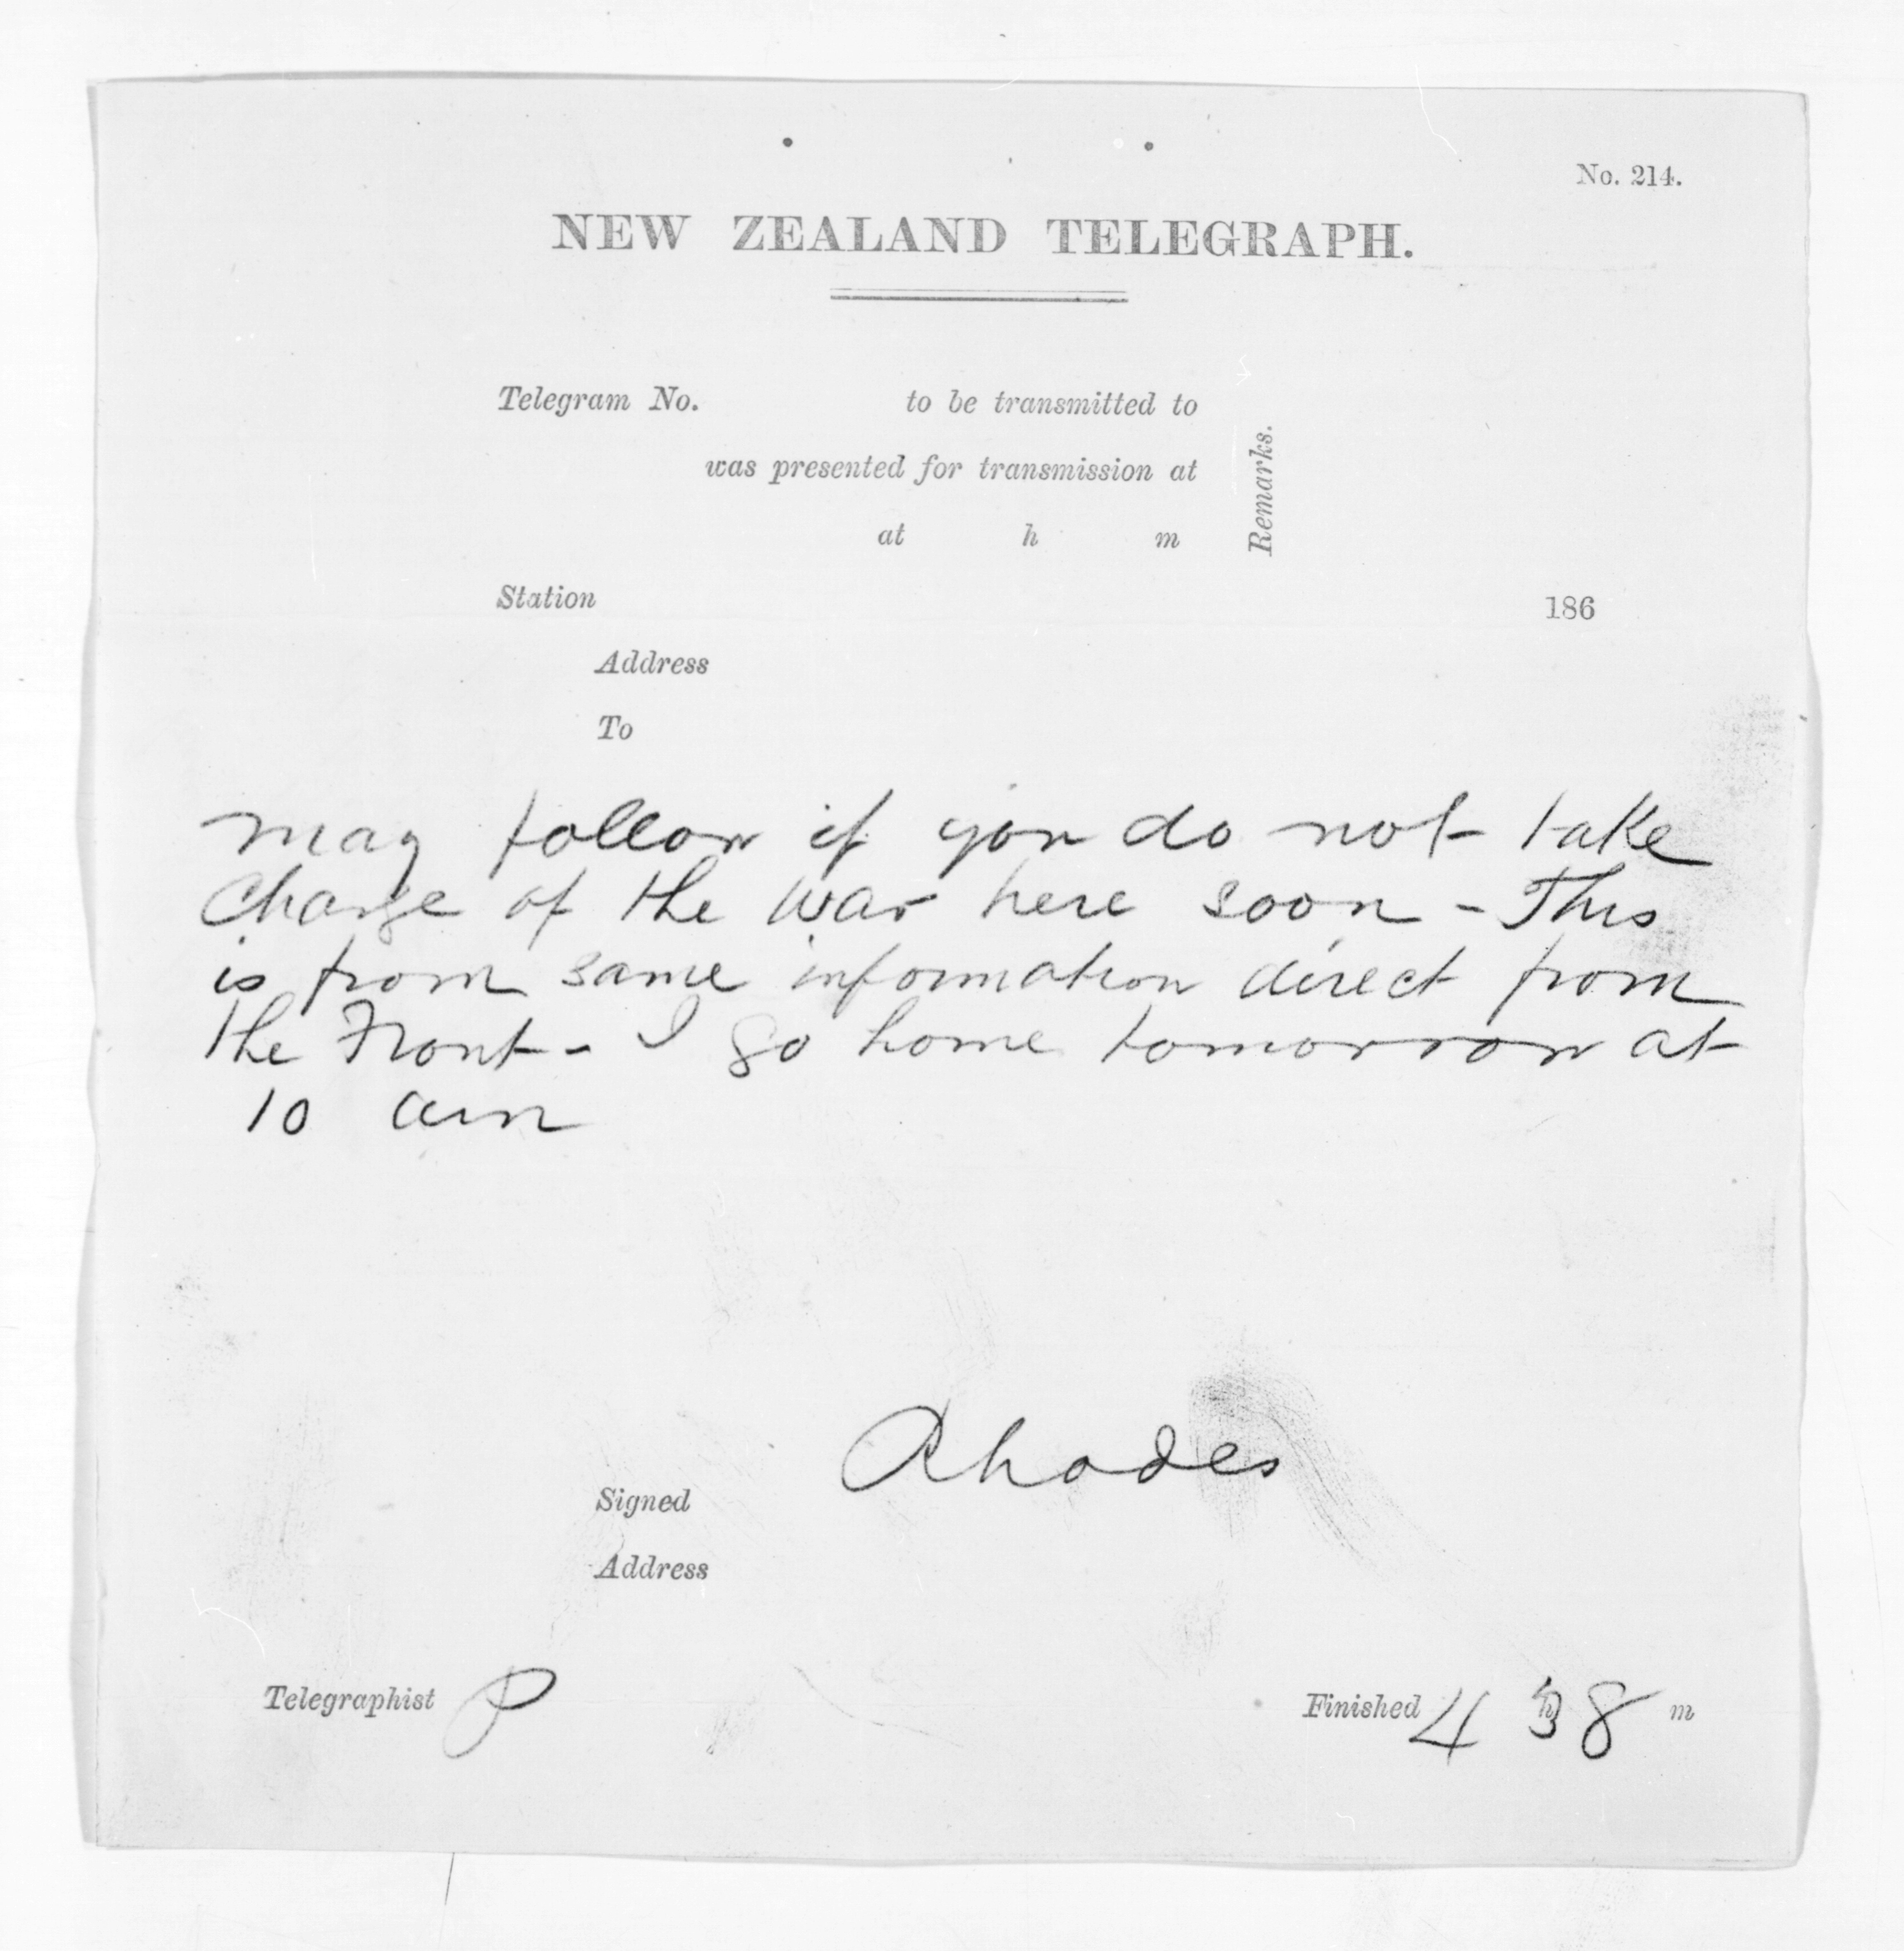 No. 214.
NEW ZEALAND TELEGRAPH.
Telegram No. to be transmitted to
was presented for transmission at
at h m
Remarks.
Station 186
Address
To
may follow if you do not take
Charge of the war here soon - This
is from same information direct from
the Front - I go home tomorrow at
10 am
Rhodes
Signed
Address
Telegraphist P Finished 4 h 38 m